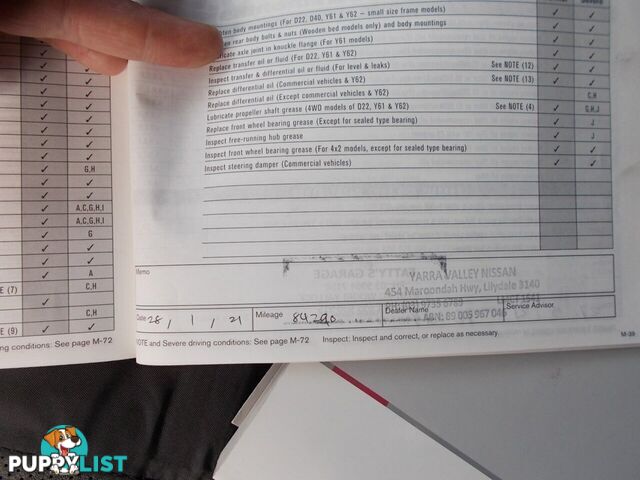 G,H
A,C,G,H,I
A,C,G,H,I
G
A
E (7) C,H
C,H
E (9)
ng conditions: See page M-72
body mountings (For D22, D40, Y61 & Y62 – small size frame models)
rear body bolts & nuts (Wooden bed models only) and body mountings
axle joint in knuckle flange (For Y61 models)
Replace transfer oil or fluid (For D22, Y61 & Y62)
Inspect transfer & differential oil or fluid (For level & leaks) See NOTE (12)
Replace differential oil (Commercial vehicles & Y62) See NOTE (13)
Replace differential oil (Except commercial vehicles & Y62) C,H
Lubricate propeller shaft grease (4WD models of D22, Y61 & Y62) See NOTE (4) G,H,J
Replace front wheel bearing grease (Except for sealed type bearing) J
Inspect free-running hub grease J
Inspect front wheel bearing grease (For 4x2 models, except for sealed type bearing)
Inspect steering damper (Commercial vehicles)
Memo
YARRA VALLEY NISSAN
454 Maroondah Hwy, Lilydale 3140
Date 28 / 1 / 21 Mileage 84290 Dealer Name Service Advisor
ABN: 89 005 967 046
NOTE and Severe driving conditions: See page M-72 Inspect: Inspect and correct, or replace as necessary.
M-39
PUPPYLIST